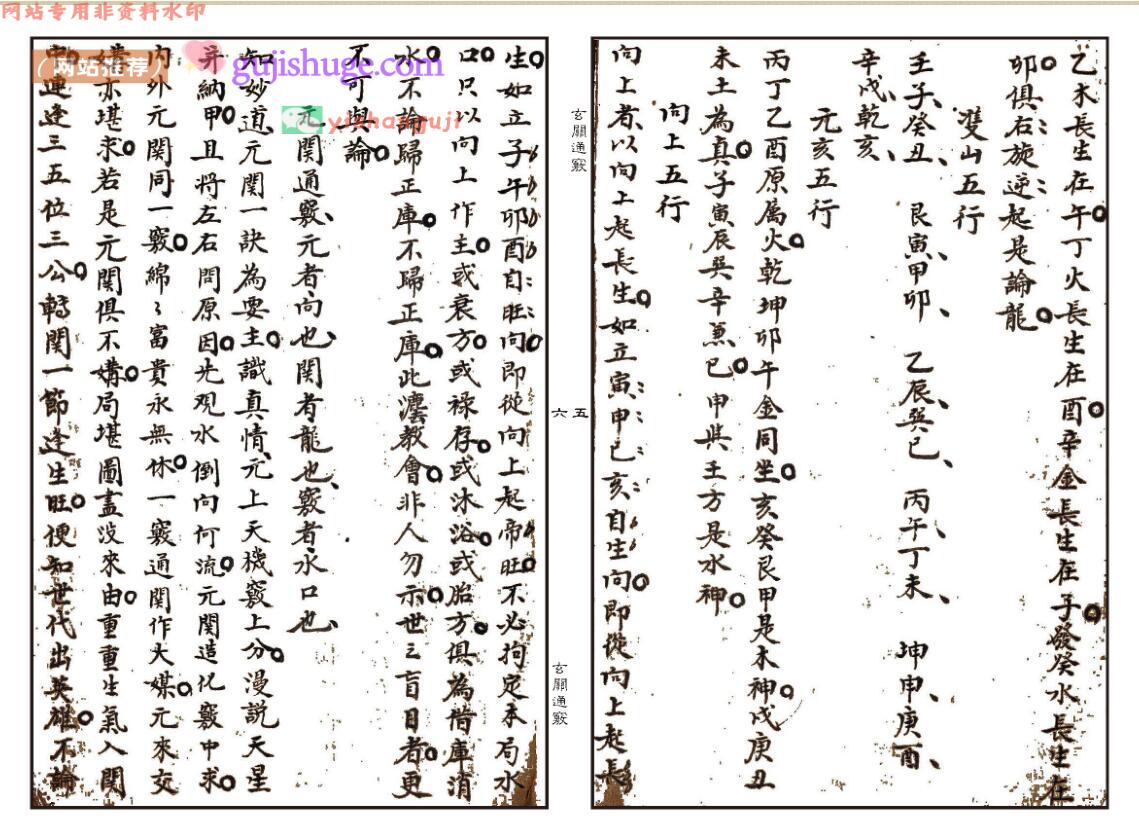 网站专用非资料水印
乙木長生在午丁火長生在酉辛金長生在子癸水長生在
卯俱右旋逆起是論龍
雙山五行
壬子癸丑 艮寅甲卯 乙辰巽巳 丙午丁未 坤申庚酉
辛戌乾亥
元亥五行
丙丁乙酉原属火乾坤卯午金同坐亥癸艮甲是木神戌庚丑
未土為真子寅辰巽辛兼巳申與壬方是水神
向上五行
向上者以向上起長生如立寅甲巳亥自生向即從向上起長
玄關通竅
五
六
玄關通竅
生如立子午卯酉自旺向即從向上起帝旺不必拘定本局水
口只以向上作主或衰方或祿存或沐浴或胎方俱為借庫消
水不論歸正庫不歸正庫此瀍教會非人勿示世之盲目者更
不可與論
元関通竅元者向也関者龍也竅者水口也
知妙道元関一訣為要主識真情元上天機竅上分漫説天星
并納甲且將左右問原因先观水倒向何流元関造化竅中求
内外元関同一竅綿〻富貴永無休一竅通関作大媒元來交
媾亦堪求若是元関俱不媾局堪圖畫没來由重重生氣入関
中連逢三五位三公轉関一節逢生旺便知世代出英雄不論
(网站推荐)
gujishuge.com
yishanguji